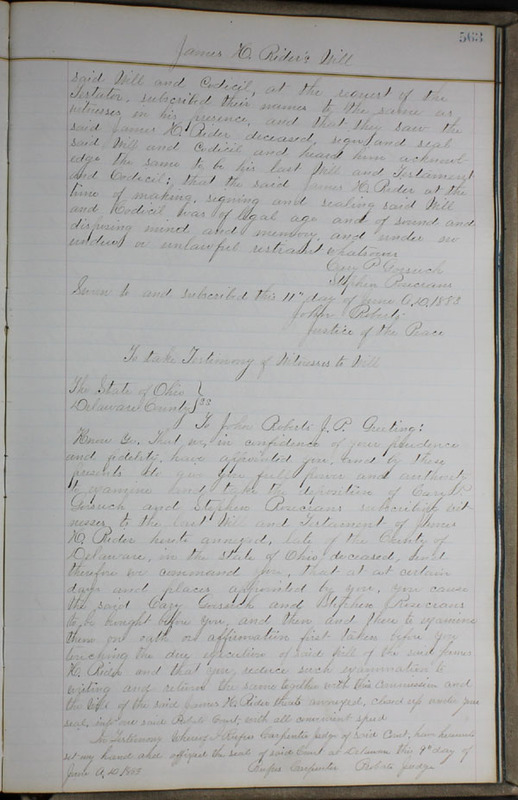 563
James H. Rider's Will
said Will and Codicil, at the request of the
Testator, subscribed their names to the same as
witnesses in his presence, and that they saw the
said James H. Rider deceased, sign and seal
said Will and Codicil and heard him acknowl-
edge the same to be his last Will and Testament
and Codicil; that the said James H. Rider at the
time of making, signing and sealing said Will
and Codicil was of legal age and of sound and
disposing mind and memory, and under no
undue or unlawful restraint whatsoever
Cary P. Gorsuch
Stephen Rosecrans
Sworn to and subscribed this 11" day of June A.D. 1883
John Roberts
Justice of the Peace
To take Testimony of Witnesses to Will
The State of Ohio }
Delaware County } SS
To John Roberts J. P. Greeting:
Know ye, That we, in confidence of your prudence
and fidelity, have appointed you, and by these
presents do give you full power and authority
to examine and take the deposition of Cary P.
Gorsuch and Stephen Rosecrans subscribing wit-
nesses to the last Will and Testament of James
H. Rider hereto annexed, late of the County of
Delaware, in the state of Ohio, deceased, and
therefore we command you, that at certain
days and places appointed by you, you cause
the said Cary Gorsuch and Stephen Rosecrans
to be brought before you, and then and there to examine
them on oath or affirmation first taken before you
touching the due execution of said Will of the said James
H. Rider and that you reduce such examination to
writing and return the same together with this commission and
the Will of the said James H. Rider thereto annexed, closed up under your
seal, into our said Probate Court, with all convenient speed
In Testimony Whereof I Rufus Carpenter Judge of said Court, have hereunto
set my hand and affixed the seal of said Court at Delaware this 9" day of
June A.D. 1883 Rufus Carpenter Probate Judge